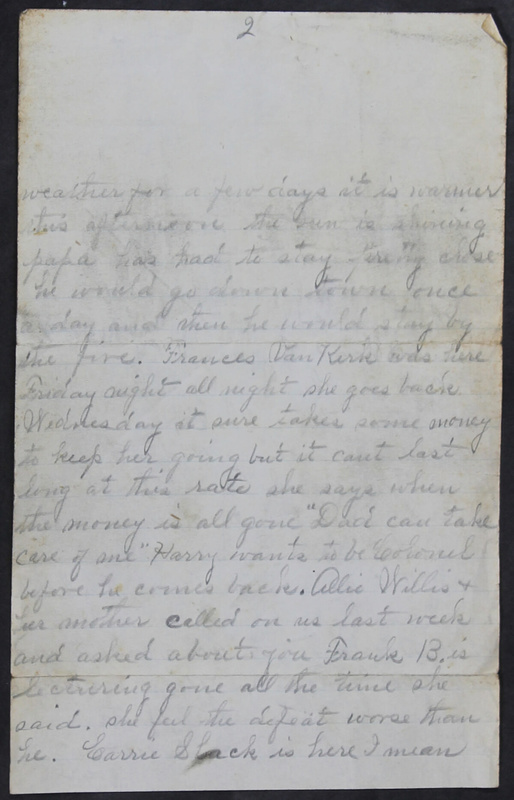 2
weather for a few days it is warmer
this afternoon the sun is shining
papa has had to stay pretty close
he would go down town once
a day and then he would stay by
the fire. Frances Van Kerk was here
Friday night all night she goes back
Wednesday it sure takes some money
to keep her going but it cant last
long at this rate she says when
the money is all gone "Dad can take
care of me" Harry wants to be Colonel
before he comes back. Allie Willis +
her mother called on us last week
and asked about you Frank B. is
lecturering gone all the time she
said. she feel the defeat worse than
he. Carrie Slack is here I mean